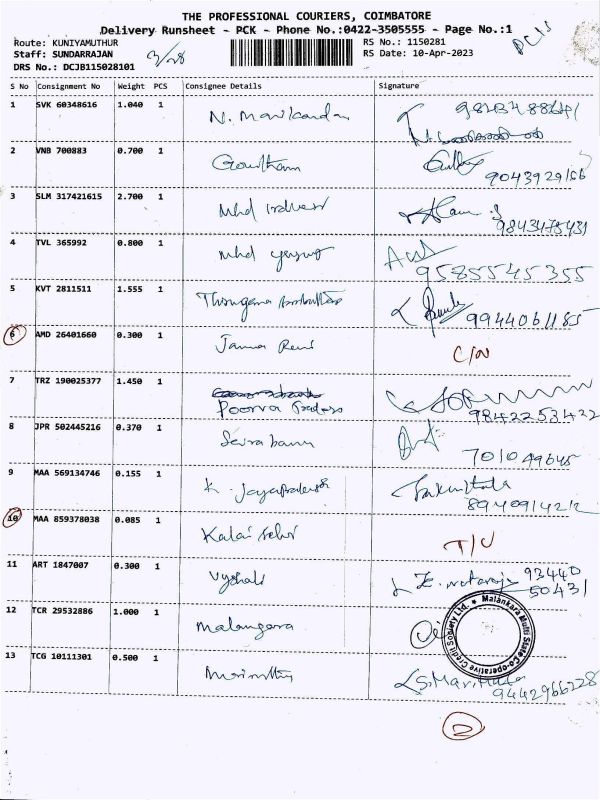 THE PROFESSIONAL COURIERS, COIMBATORE
Delivery Runsheet - PCK - Phone No.:0422-3505555 - Page No.:1
Route: KUNIYAMUTHUR RS No.: 1150281
Staff: SUNDARRAJAN RS Date: 10-Apr-2023
DRS No.: DCJB115028101
S No Consignment No Weight PCS Consignee Details Signature
1 SVK 60348616 1.040 1
2 VNB 700883 0.700 1 Gowtham
9043929166
3 SLM 317421615 2.700 1
9843475431
4 TVL 365992 0.800 1
9585545355
5 KVT 2811511 1.555 1
9944061185
6 AMD 26401660 0.300 1
7 TRZ 190025377 1.450 1
Poorva Traders 9842253422
8 JPR 502445216 0.370 1
9 MAA 569134746 0.155 1 K. Jayaprakash
10 MAA 859378038 0.085 1 Kalai selvi
11 ART 1847007 0.300 1 Vyshali 93440
50431
12 TCR 29532886 1.000 1 Malangara
Malankara Multi State Co-operative Credit Society Ltd.
13 TCG 10111301 0.500 1
9442966228
2